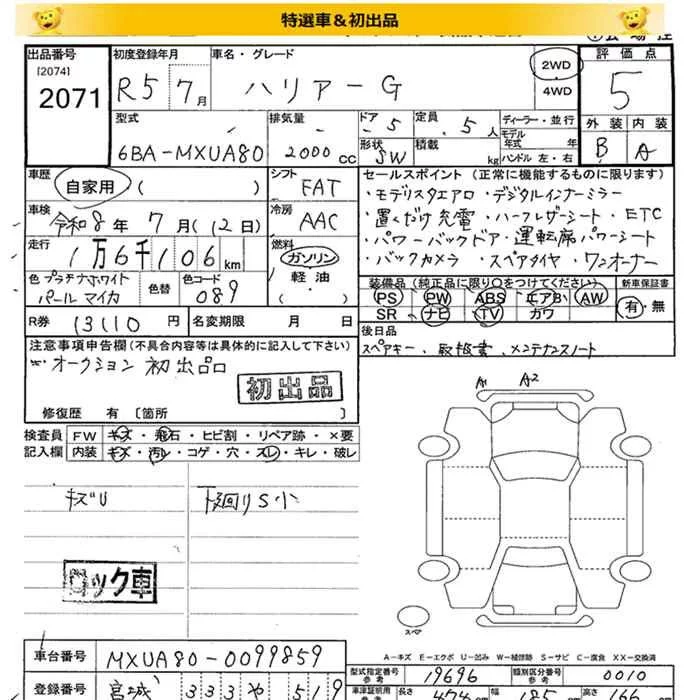 特選車＆初出品
出品番号
[2074]
2071
初度登録年月
R5 7月
車名・グレード
ハリアーG
2WD
4WD
評価点
5
外装 内装
B A
型式
6BA-MXUA80
排気量
2000cc
ドア 5
定員 5人
形状 SW
積載 kg
ディーラー・並行
モデル
年式 年
ハンドル 左・右
車歴
自家用 ( )
シフト
FAT
車検
令和8年7月(12日)
冷房
AAC
走行
1万6千106km
燃料
ガソリン
軽油
( )
色 プラチナホワイト
パールマイカ
色替
色コード
089
R券 13110円
名変期限 月 日
セールスポイント (正常に機能するものに限ります)
・モデリスタエアロ・デジタルインナーミラー
・置くだけ充電・ハーフレザーシート・ETC
・パワーバックドア・運転席パワーシート
・バックカメラ・スペアタイヤ・ワンオーナー
装備品 (純正品に限り○をつけてください)
PS PW ABS エアB AW
SR ナビ TV カワ
新車保証書
有・無
後日品
スペアキー、取扱書、メンテナンスノート
注意事項申告欄(不具合内容等は具体的に記入して下さい)
オークション初出品
初出品
修復歴 有 〔箇所 〕
検査員
記入欄
FW キズ・飛石・ヒビ割・リペア跡・×要
内装 キズ・汚レ・コゲ・穴・スレ・キレ・破レ
キズU
下廻りS小
ロック車
A1 A2
スペア
A−キズ E−エクボ U−凹み W−補修跡 S−サビ C−腐食 XX−交換済
車台番号 MXUA80-0099859
登録番号 宮城 333 や 519
型式指定番号
参考
19696
類別区分番号
参考
0010
車検証簡用
参考
長さ 474cm 幅 185cm 高さ 166